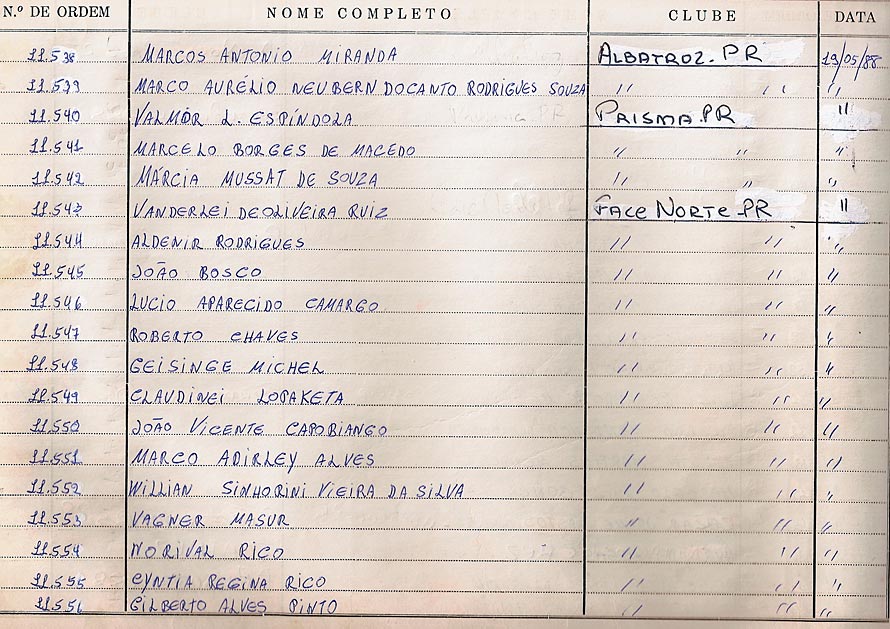 N.º DE ORDEM NOME COMPLETO CLUBE DATA
11.538 MARCOS ANTONIO MIRANDA ALBATROZ-PR 19/05/88
11.539 MARCO AURÉLIO NEUBERN DOCANTO RODRIGUES SOUZA " " "
11.540 VALMÓR L. ESPÍNDOLA PRISMA-PR "
11.541 MARCELO BORGES DE MACEDO " " "
11.542 MÁRCIA MUSSAT DE SOUZA " " "
11.543 VANDERLEI DE OLIVEIRA RUIZ FACE NORTE-PR "
11.544 ALDENIR RODRIGUES " " "
11.545 JOÃO BOSCO " " "
11.546 LUCIO APARECIDO CAMARGO " " "
11.547 ROBERTO CHAVES " " "
11.548 GEISINGE MICHEL " " "
11.549 CLAUDINEI LOPAKETA " " "
11.550 JOÃO VICENTE CAPOBIANGO " " "
11.551 MARCO ADIRLEY ALVES " " "
11.552 WILLIAN SINHORINI VIEIRA DA SILVA " " "
11.553 VAGNER MASUR " " "
11.554 NORIVAL RICO " " "
11.555 CYNTIA REGINA RICO " " "
11.556 GILBERTO ALVES PINTO " " "